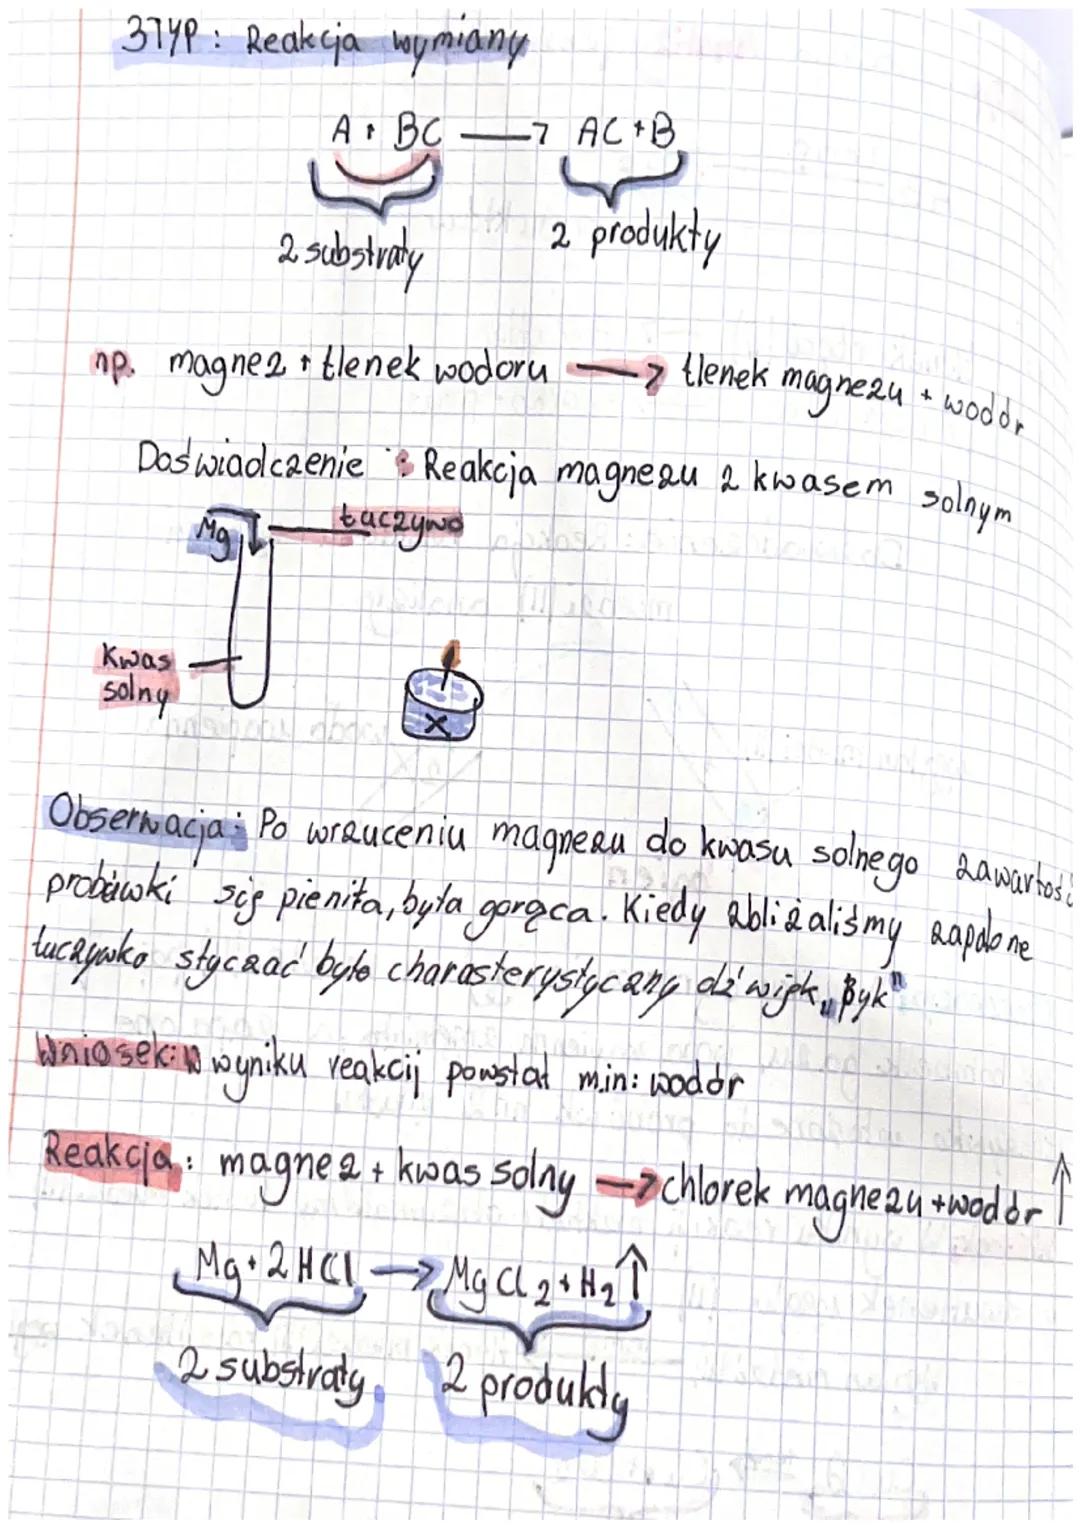 3TYP: Reakcja wymiany
A + BC → AC + B
2 substraty 2 produkty
np. magnez + tlenek wodoru → tlenek magnezu + wodór
Doświadczenie: Reakcja magnezu z kwasem solnym
Mg łaczywo
Kwas
solny
Obserwacja: Po wrzuceniu magnezu do kwasu solnego zawartość
probówki się pieniła, była gorąca. Kiedy zbliżaliśmy zapalone
łuczywko styczać było charasterystyczny dźwięk „Byk"
Wniosek: W wyniku reakcij powstał m.in: wodór
Reakcja: magnez + kwas solny → chlorek magnezu + wodór ↑
Mg + 2HCl → MgCl2 + H2 ↑
2 substraty 2 produkty